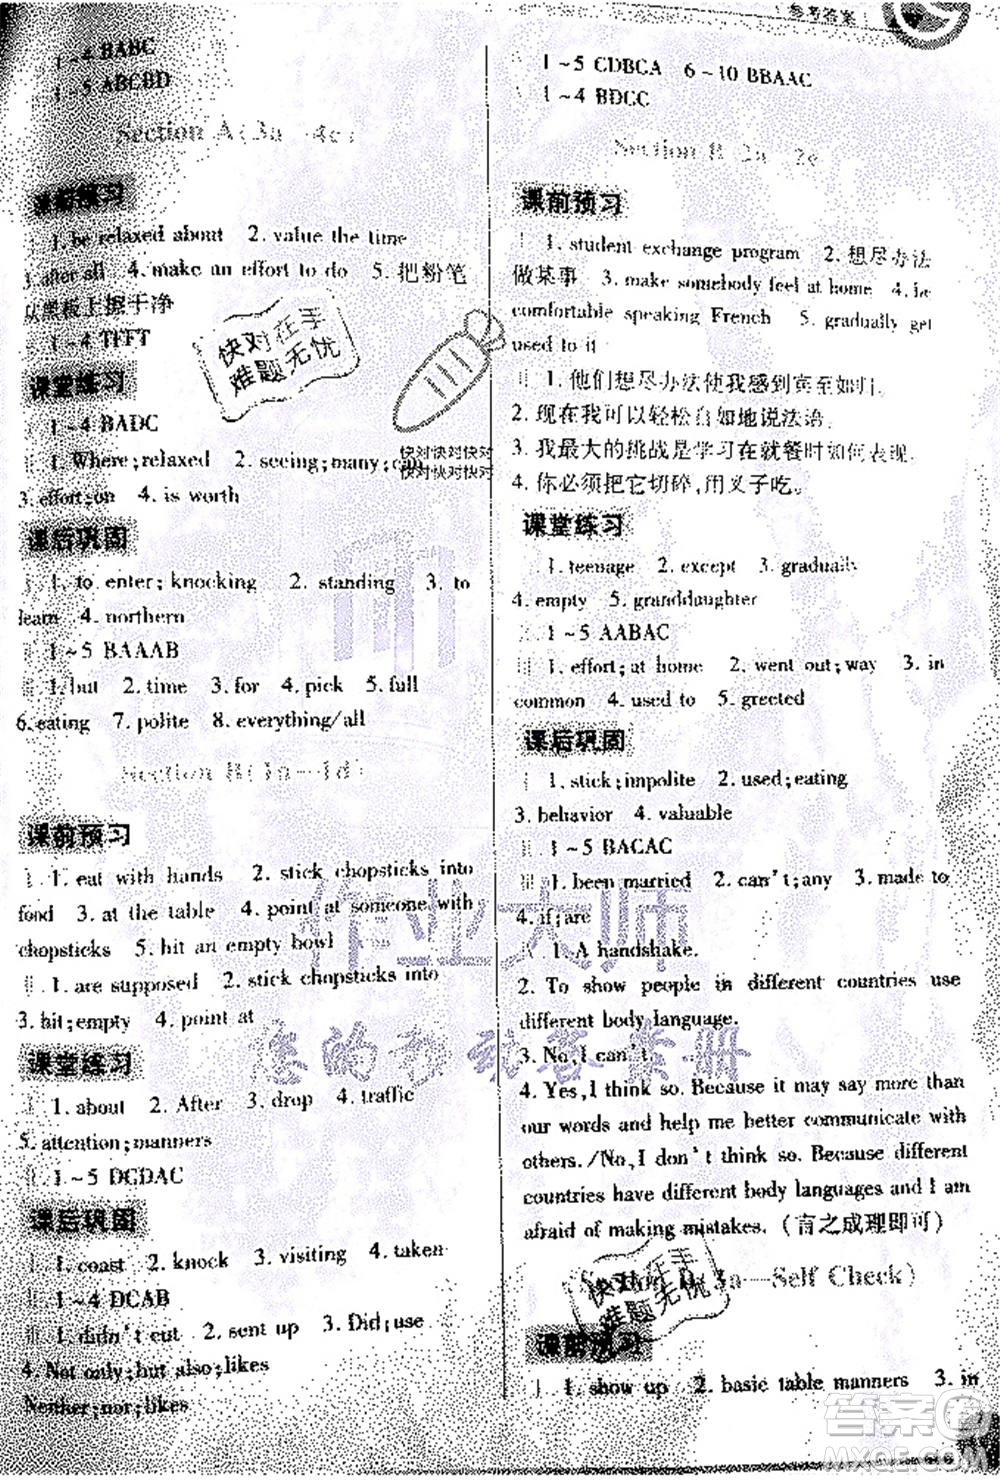 参考答案
1~4 BABC
1~5 ABCBD
Section A(3a—4c)
课前预习
1. be relaxed about 2. value the time
3. after all 4. make an effort to do 5. 把粉笔
从黑板上擦干净
1~4 TFFT
课堂练习
1~4 BADC
1. Where;relaxed 2. seeing;many;can
3. effort;on 4. is worth
课后巩固
1. to enter;knocking 2. standing 3. to
learn 4. northern
1~5 BAAAB
1. but 2. time 3. for 4. pick 5. full
6. eating 7. polite 8. everything/all
Section B(1a—1d)
课前预习
1. eat with hands 2. stick chopsticks into
food 3. at the table 4. point at someone with
chopsticks 5. hit an empty bowl
1. are supposed 2. stick chopsticks into
3. hit;empty 4. point at
课堂练习
1. about 2. After 3. drop 4. traffic
5. attention;manners
1~5 DCDAC
课后巩固
1. coast 2. knock 3. visiting 4. taken
1~4 DCAB
1. didn't cut 2. sent up 3. Did;use
4. Not only;but also;likes
Neither;nor;likes
1~5 CDBCA 6~10 BBAAC
1~4 BDCC
Section B(2a—2e)
课前预习
1. student exchange program 2. 想尽办法
做某事 3. make somebody feel at home 4. be
comfortable speaking French 5. gradually get
used to it
1. 他们想尽办法使我感到宾至如归.
2. 现在我可以轻松自如地说法语.
3. 我最大的挑战是学习在就餐时如何表现.
4. 你必须把它切碎,用叉子吃。
课堂练习
1. teenage 2. except 3. gradually
4. empty 5. granddaughter
1~5 AABAC
1. effort;at home 2. went out;way 3. in
common 4. used to 5. greeted
课后巩固
1. stick;impolite 2. used;eating
3. behavior 4. valuable
1~5 BACAC
1. been married 2. can't;any 3. made to
4. if;are
1. A handshake.
2. To show people in different countries use
different body language.
3. No,I can't.
4. Yes,I think so. Because it may say more than
our words and help me better communicate with
others./No,I don't think so. Because different
countries have different body languages and I am
afraid of making mistakes.(言之成理即可)
Section B(3a—Self Check)
课前预习
1. show up 2. basic table manners 3. in
快对在手
难题无忧
快对快对快对
快对快对快对
作业大师
您的移动答案册
快对在手
难题无忧
答案圈
MXQE.COM